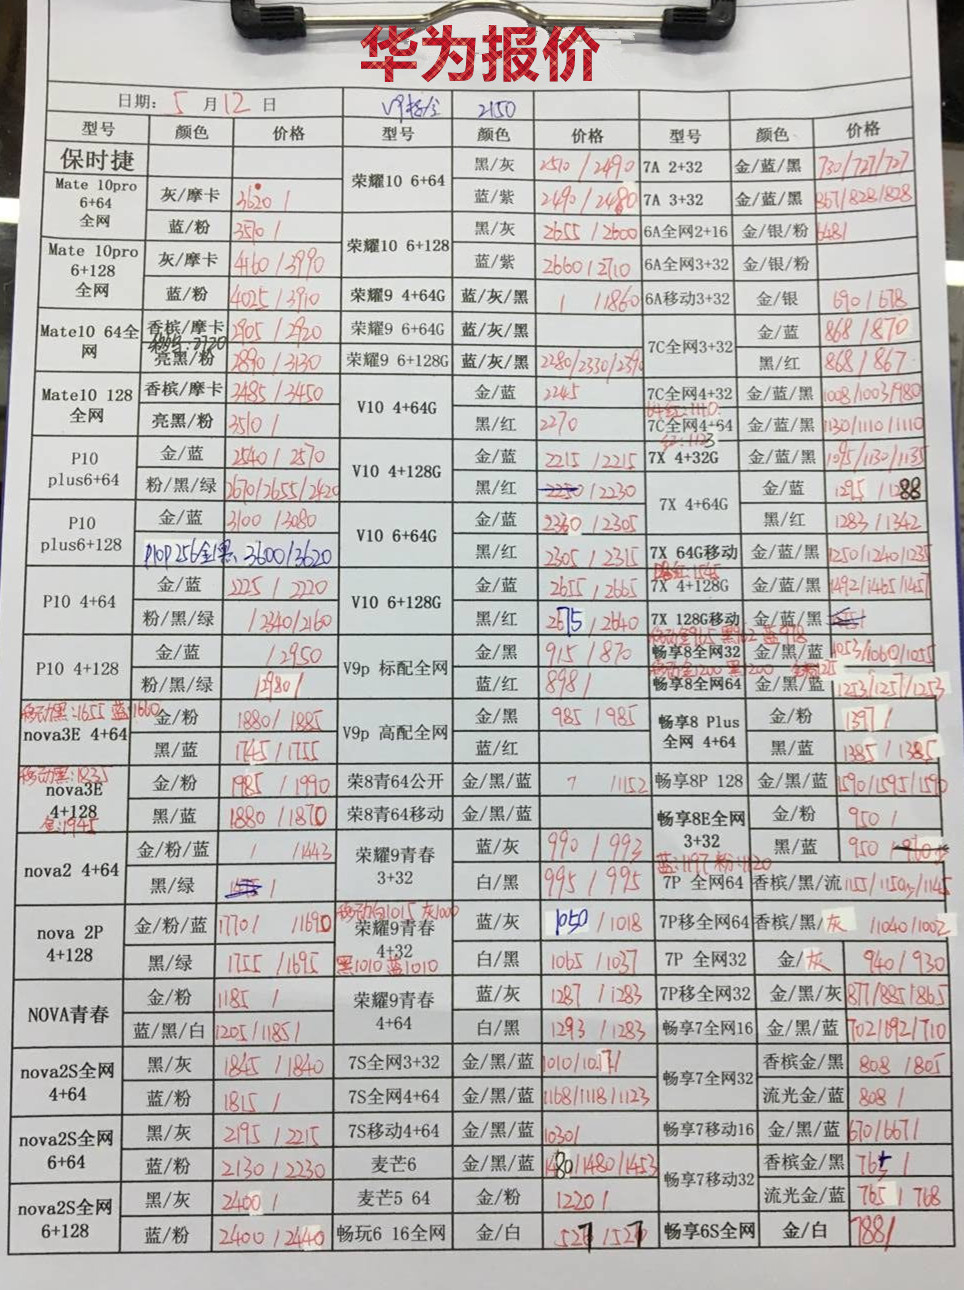 华为报价
日期: 5 月 12 日 V9 2150
型号 颜色 价格 型号 颜色 价格 型号 颜色 价格
保时捷 荣耀10 6+64 黑/灰 2510/2490 7A 2+32 金/蓝/黑 730/727/727
Mate 10pro 6+64 全网 灰/摩卡 3620/ 蓝/紫 2490/2480 7A 3+32 金/蓝/黑 867/828/828
蓝/粉 3570/ 荣耀10 6+128 黑/灰 2655/2600 6A全网2+16 金/银/粉 648/
Mate 10pro 6+128 全网 灰/摩卡 4160/3990 蓝/紫 2660/2710 6A全网3+32 金/银/粉
蓝/粉 4025/3910 荣耀9 4+64G 蓝/灰/黑 /1860 6A移动3+32 金/银 690/678
Mate10 64全网 香槟/摩卡 2905/2920 荣耀9 6+64G 蓝/灰/黑 7C全网3+32 金/蓝 868/870
亮黑/粉 2890/3130 荣耀9 6+128G 蓝/灰/黑 2280/2330/2390 黑/红 868/867
Mate10 128全网 香槟/摩卡 3485/3450 V10 4+64G 金/蓝 2245 7C全网4+32 金/蓝/黑 1008/1003/980
亮黑/粉 3510/ 黑/红 2270 7C全网4+64 金/蓝/黑 1130/1110/1110
P10 plus6+64 金/蓝 2540/2570 V10 4+128G 金/蓝 2215/2215 7X 4+32G 金/蓝/黑 1095/1130/1135
粉/黑/绿 2670/2655/2420 黑/红 2250/2230 7X 4+64G 金/蓝 1295/1288
P10 plus6+128 金/蓝 3100/3080 V10 6+64G 金/蓝 2330/2305 黑/红 1283/1342
P10P 256金/黑: 3600/3620 黑/红 2305/2315 7X 64G移动 金/蓝/黑 1250/1240/1235
P10 4+64 金/蓝 2225/2220 V10 6+128G 金/蓝 2655/2665 7X 4+128G 金/蓝/黑 1492/1465/1457
粉/黑/绿 /2340/2160 黑/红 2675/2640 7X 128G移动 金/蓝/黑
P10 4+128 金/蓝 /2950 V9p 标配全网 金/黑 915/870 畅享8全网32 金/黑/蓝 1053/1060/1055
粉/黑/绿 /2980/ 蓝/红 898/ 畅享8全网64 金/黑/蓝 1253/1257/1253
移动黑:1655 蓝:1660
nova3E 4+64 金/粉 1880/1885 V9p 高配全网 金/黑 985/985 畅享8 Plus 全网 4+64 金/粉 1397/
黑/蓝 1745/1755 蓝/红 黑/蓝 1385/1385
移动黑:1835
nova3E 4+128 金/粉 1985/1990 荣8青64公开 金/黑/蓝 /1152 畅享8P 128 金/黑/蓝 1590/1595/1590
金:1945
黑/蓝 1880/1870 荣8青64移动 金/黑/蓝 畅享8E全网 3+32 金/粉 950/
nova2 4+64 金/粉/蓝 /1443 荣耀9青春 3+32 蓝/灰 990/993 黑/蓝 950
蓝:1197 粉:1120
黑/绿 白/黑 995/995 7P 全网64 香槟/黑/流 1155/1150/1145
移动白1015 灰1000
nova 2P 4+128 金/粉/蓝 1770/1690 荣耀9青春 4+32 蓝/灰 1050/1018 7P移全网64 香槟/黑/灰 1040/1002
黑1010 蓝1010
黑/绿 1755/1695 白/黑 1065/1037 7P 全网32 金/灰 940/930
NOVA青春 金/粉 1185/ 荣耀9青春 4+64 蓝/灰 1287/1283 7P移全网32 金/黑/灰 877/885/865
蓝/黑/白 1205/1185/ 白/黑 1293/1283 畅享7全网16 金/黑/蓝 702/692/710
nova2S全网 4+64 黑/灰 1845/1840 7S全网3+32 金/黑/蓝 1010/1017/ 畅享7全网32 香槟金/黑 808/805
蓝/粉 1815/ 7S全网4+64 金/黑/蓝 1168/1118/1123 流光金/蓝 808/
nova2S全网 6+64 黑/灰 2195/2215 7S移动4+64 金/黑/蓝 1030/ 畅享7移动16 金/黑/蓝 670/667/
蓝/粉 2130/2230 麦芒6 金/黑/蓝 1480/1480/1453 畅享7移动32 香槟金/黑 /
nova2S全网 6+128 黑/灰 2400/ 麦芒5 64 金/粉 1220/ 流光金/蓝 765/768
蓝/粉 2400/2440 畅玩6 16全网 金/白 527/527 畅享6S全网 金/白 788/